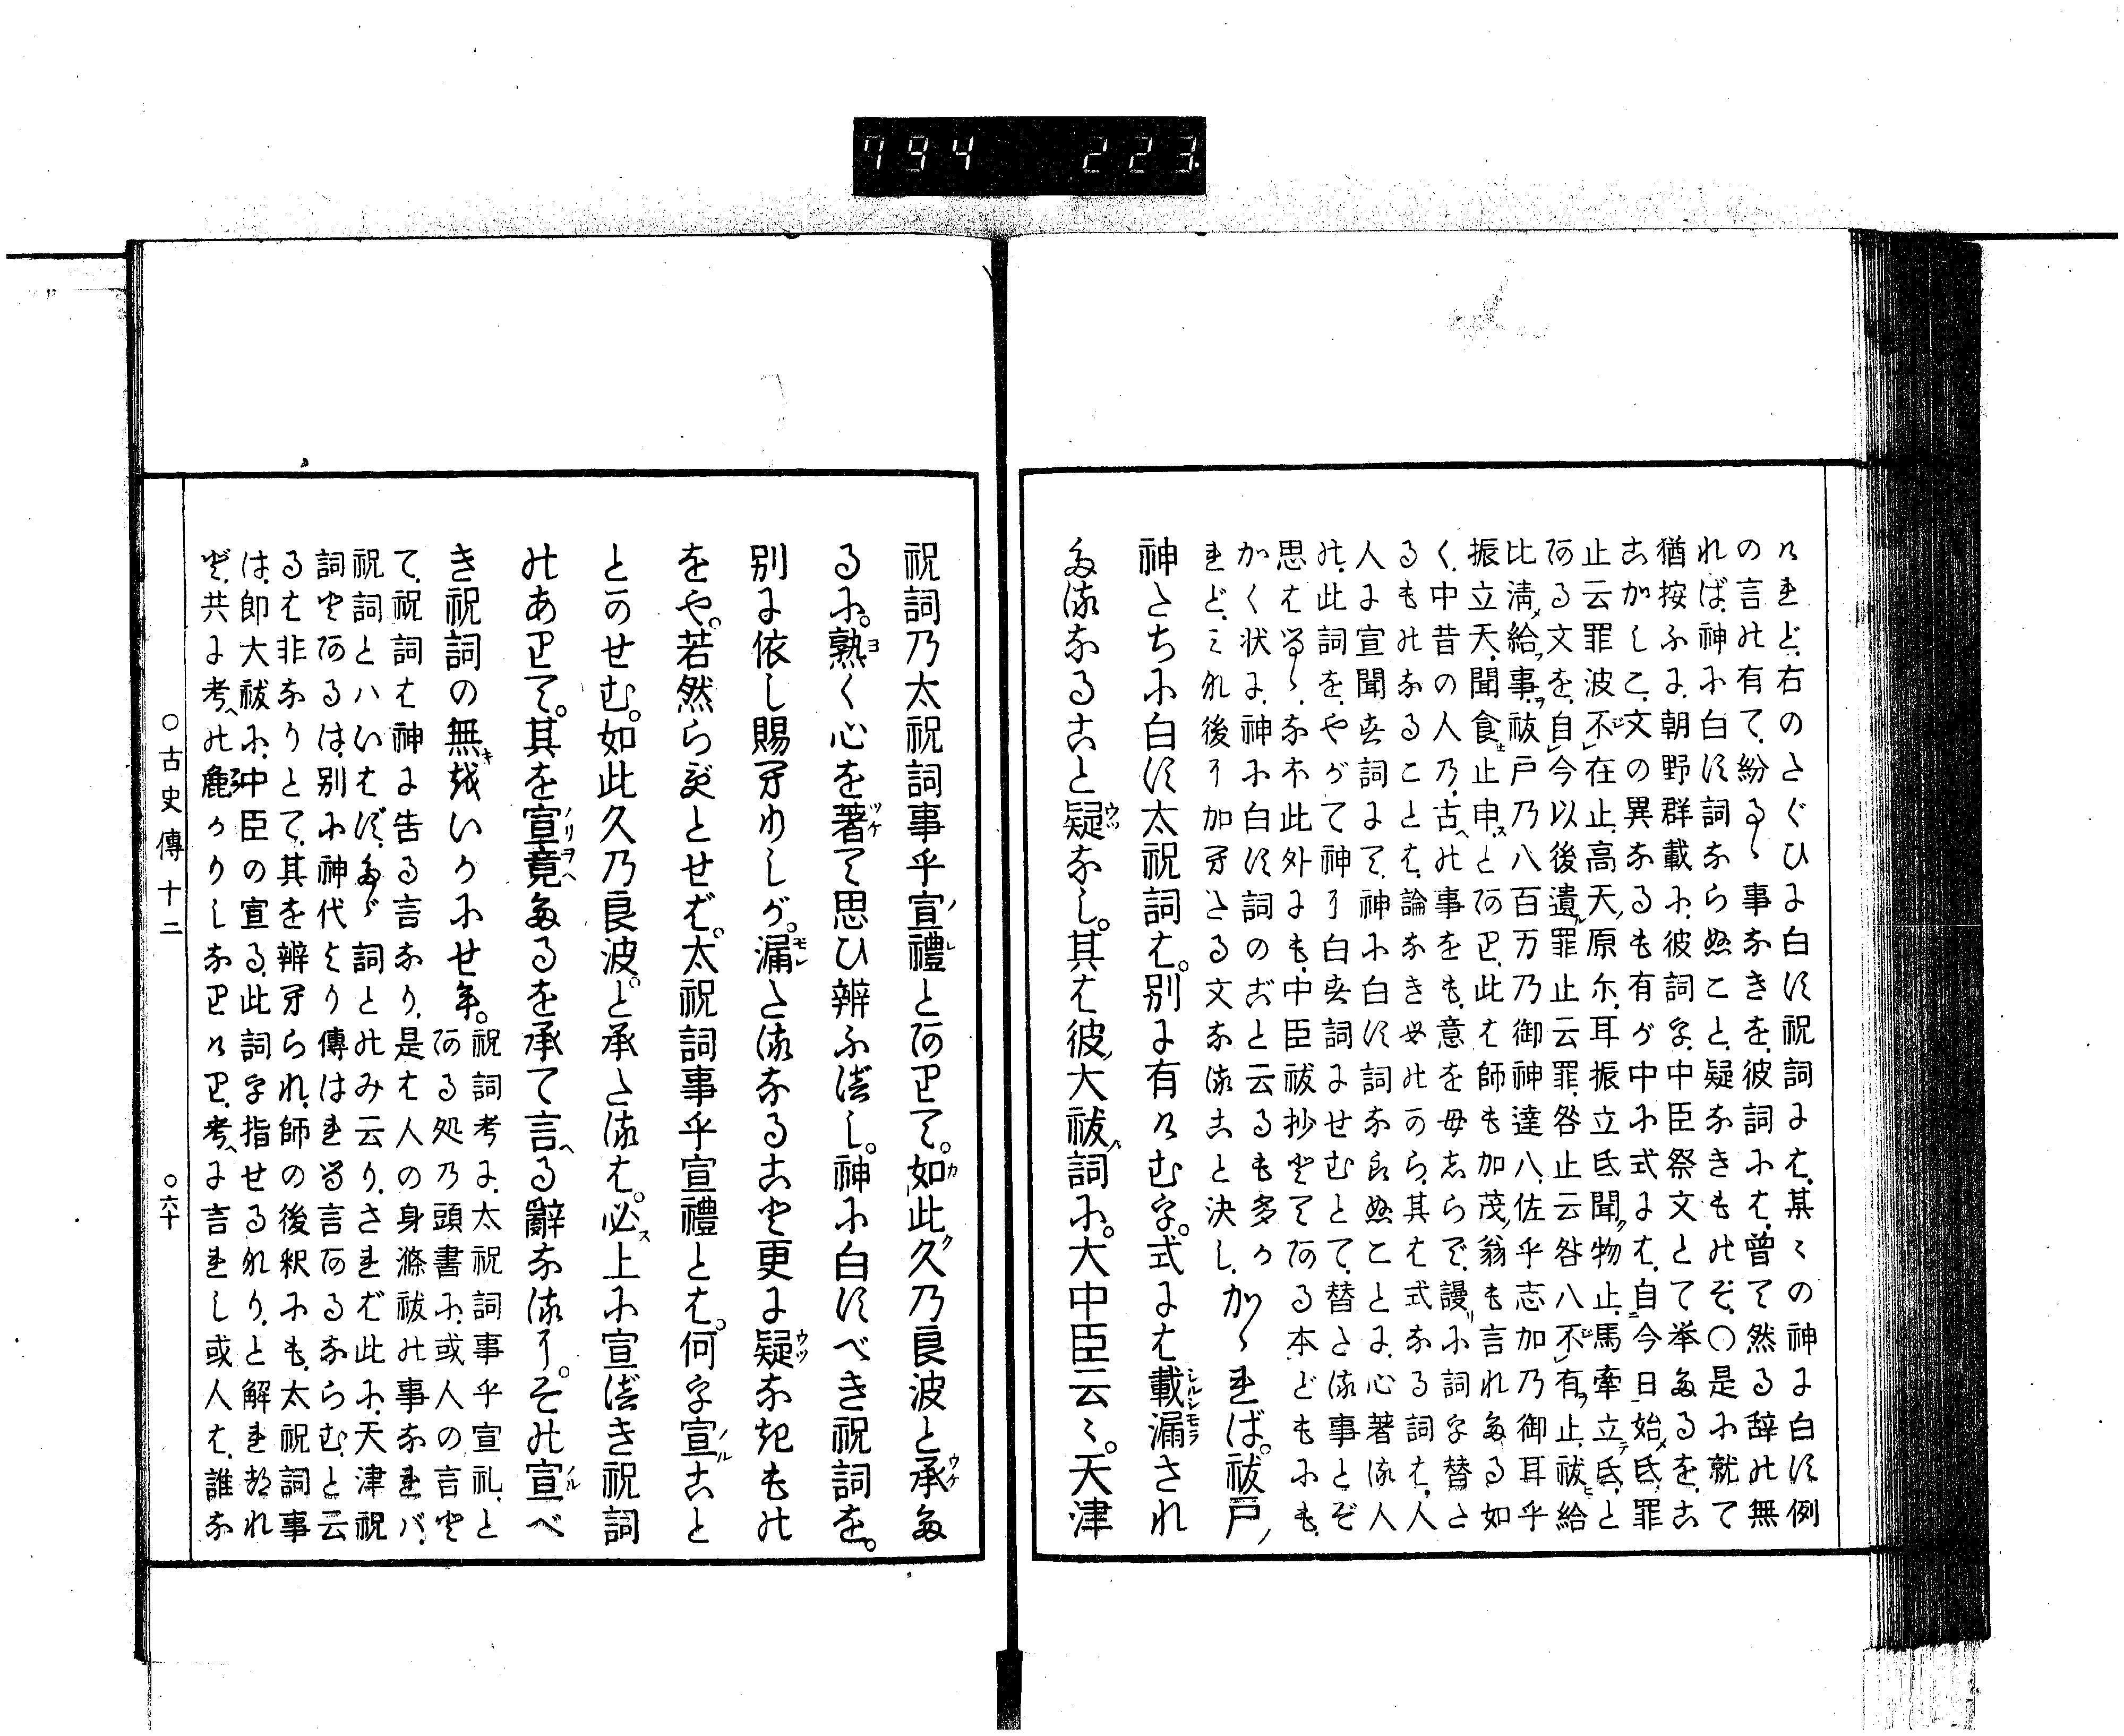 794 223
けれど、右のさぐひに白す祝詞には、某〻の神に白す例
の言の有て、紛るゝ事なきを、彼詞には、曽て然る辞の無
れば、神に白す詞ならぬこと、疑なきものぞ、〇是に就て
猶按ふに、朝野群載に、彼詞を、中臣祭文とて挙たるを、こ
こかしこ、文の異なるも有が中に、式には、自今日始氐、罪
止云罪波不在止、高天原尓、耳振立氐聞物止、馬牽立氐と
ある文を、自今以後遺罪止云罪、咎止云咎八不有止、祓給
比清給事、祓戸乃八百万乃御神達八、佐乎志加乃御耳乎
振立天、聞食止申すとあり、此は師も加茂翁も言れたる如
く、中昔の人乃、古への事をも、意をも得しらで、謾に詞を替さ
るものなることは、論なきものから、其は式なる詞は、人
人に宣聞せ詞にて、神に白す詞ならぬことに、心著る人
の、此詞を、やがて神に白せ詞にせむとて、替さる事とぞ
思はるゝ、なほ此外にも、中臣祓抄とてある本どもにも、
かく状に、神に白す詞のごと云るも多か
れど、みな後に加へさる文なること決し、かゝれば。祓戸ノ
神たちに白す太祝詞は。別に有けむを。式には載漏され
たるなること疑なし。其は彼大祓ノ詞に。大中臣云〻。天津
祝詞乃太祝詞事乎宣禮とありて。如此久乃良波と承た
るに。熟く心を著て思ひ辨ふべし。神に白すべき祝詞を。
別に依し賜へりしが。漏たるなること更に疑なきもの
をや。若然らずとせば。太祝詞事乎宣禮とは。何を宣ること
とのせむ。如此久乃良波。と承たるは。必ス上に宣べき祝詞
のありて。其を宣竟たるを承て言へる辭なるり。その宣べ
き祝詞の無きをいかにせむ。祝詞考に、太祝詞事乎宣礼、と
ある処乃頭書に、或人の言と
て、祝詞は神に告る言なり、是は人の身滌祓の事なれバ、
祝詞とハいはず、たゞ詞とのみ云り、されば此に、天津祝
詞とあるは、別に神代より傳はれる言あるならむ、と云
るは非なりとて、其を辨へられ、師の後釈にも、太祝詞事
は、即大祓に、中臣の宣る、此詞を指せるなり、と解れたれ
ど、共に考への麁かりしなりけり、考へに言れし或人は、誰な
〇古史傳十二 〇六十